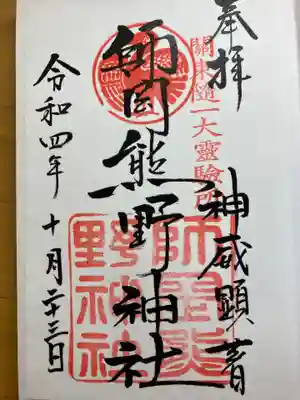 奉拝
關東隨一大靈驗所
神威顕著
師岡熊野神社
師岡熊
野神社
令和四年 十月二十三日